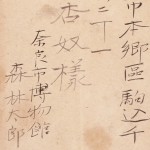 市本郷區駒込千
二丁一
杏奴樣
奈良市博物館
森林太郎